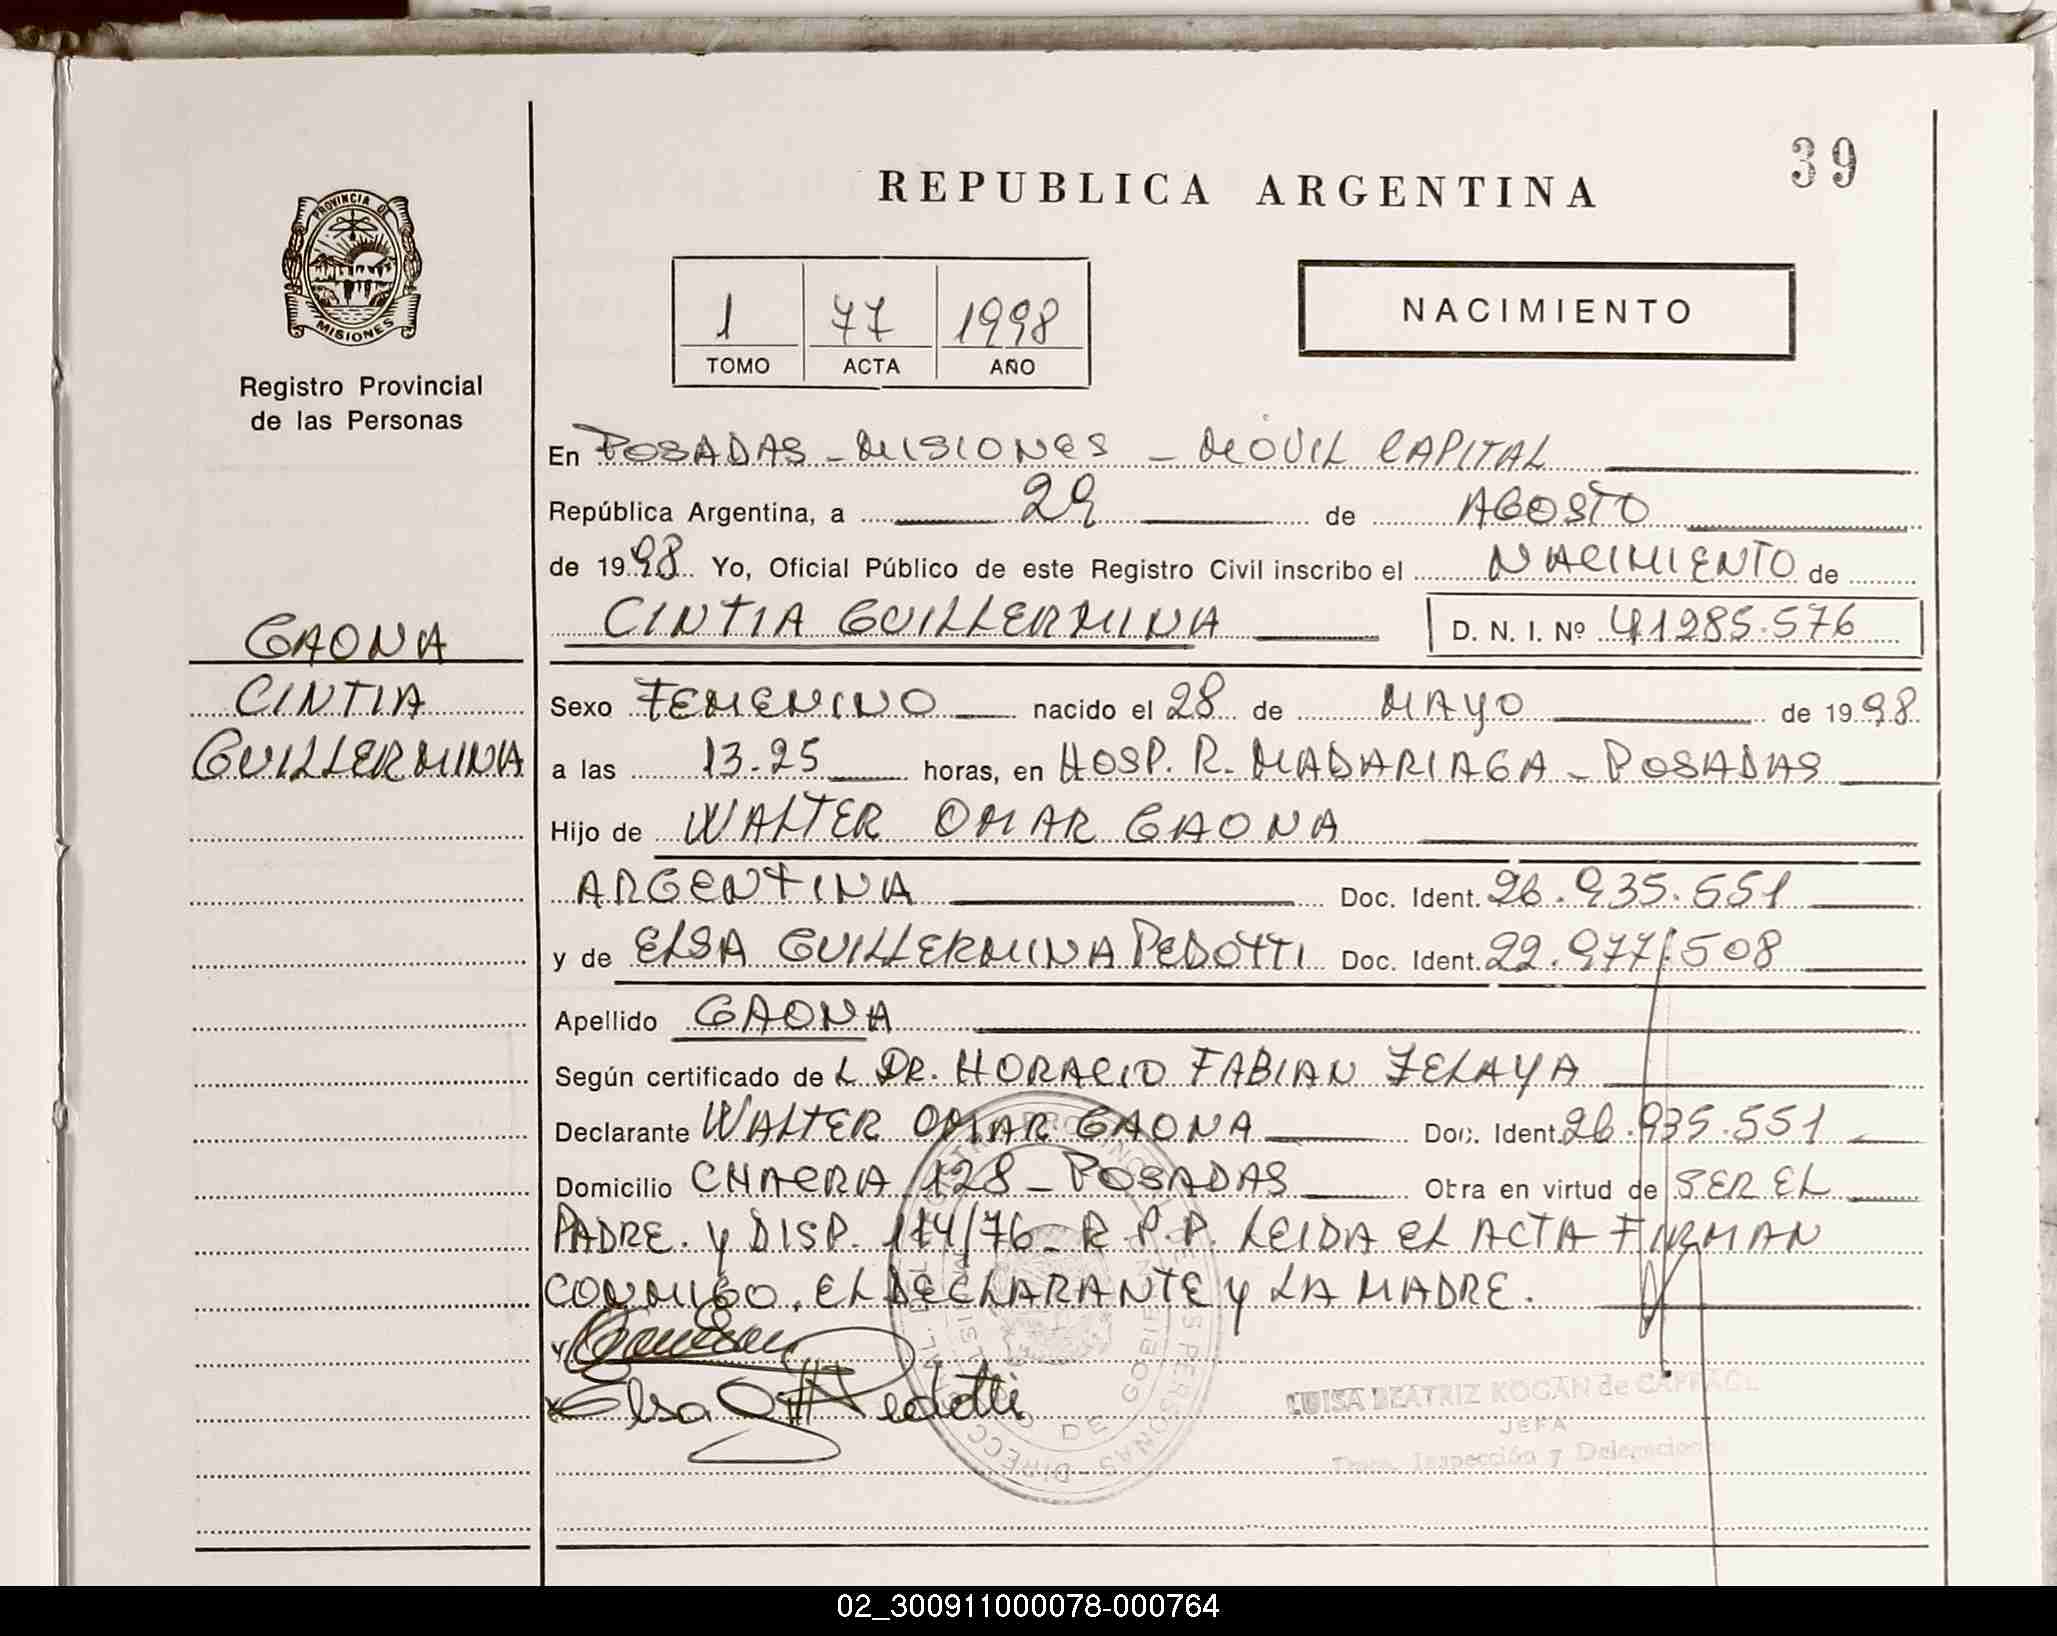 39
REPUBLICA ARGENTINA
PROVINCIA DE
MISIONES
Registro Provincial
de las Personas
1 77 1998
TOMO ACTA AÑO
NACIMIENTO
En POSADAS - MISIONES - MOVIL CAPITAL
República Argentina, a 29 de AGOSTO
de 1998 Yo, Oficial Público de este Registro Civil inscribo el NACIMIENTO de
CINTIA GUILLERMINA D. N. I. Nº 41285.576
GAONA
CINTIA
GUILLERMINA
Sexo FEMENINO nacido el 28 de MAYO de 1998
a las 13-25 horas, en HOSP. R. MADARIAGA - POSADAS
Hijo de WALTER OMAR GAONA
ARGENTINA Doc. Ident. 26.935.551
y de ELSA GUILLERMINA PEDOTTI Doc. Ident. 22.977.508
Apellido GAONA
Según certificado de L DR. HORACIO FABIAN ZELAYA
Declarante WALTER OMAR GAONA Doc. Ident. 26.935.551
Domicilio CHACRA 128 - POSADAS Obra en virtud de SER EL
PADRE. Y DISP. 114/76 - R.P.P. LEIDA EL ACTA FIRMAN
CONMIGO. EL DECLARANTE Y LA MADRE.
Elsa G Pedotti
LUISA BEATRIZ KOGAN de
JEFA
Inspección y
02_300911000078-000764